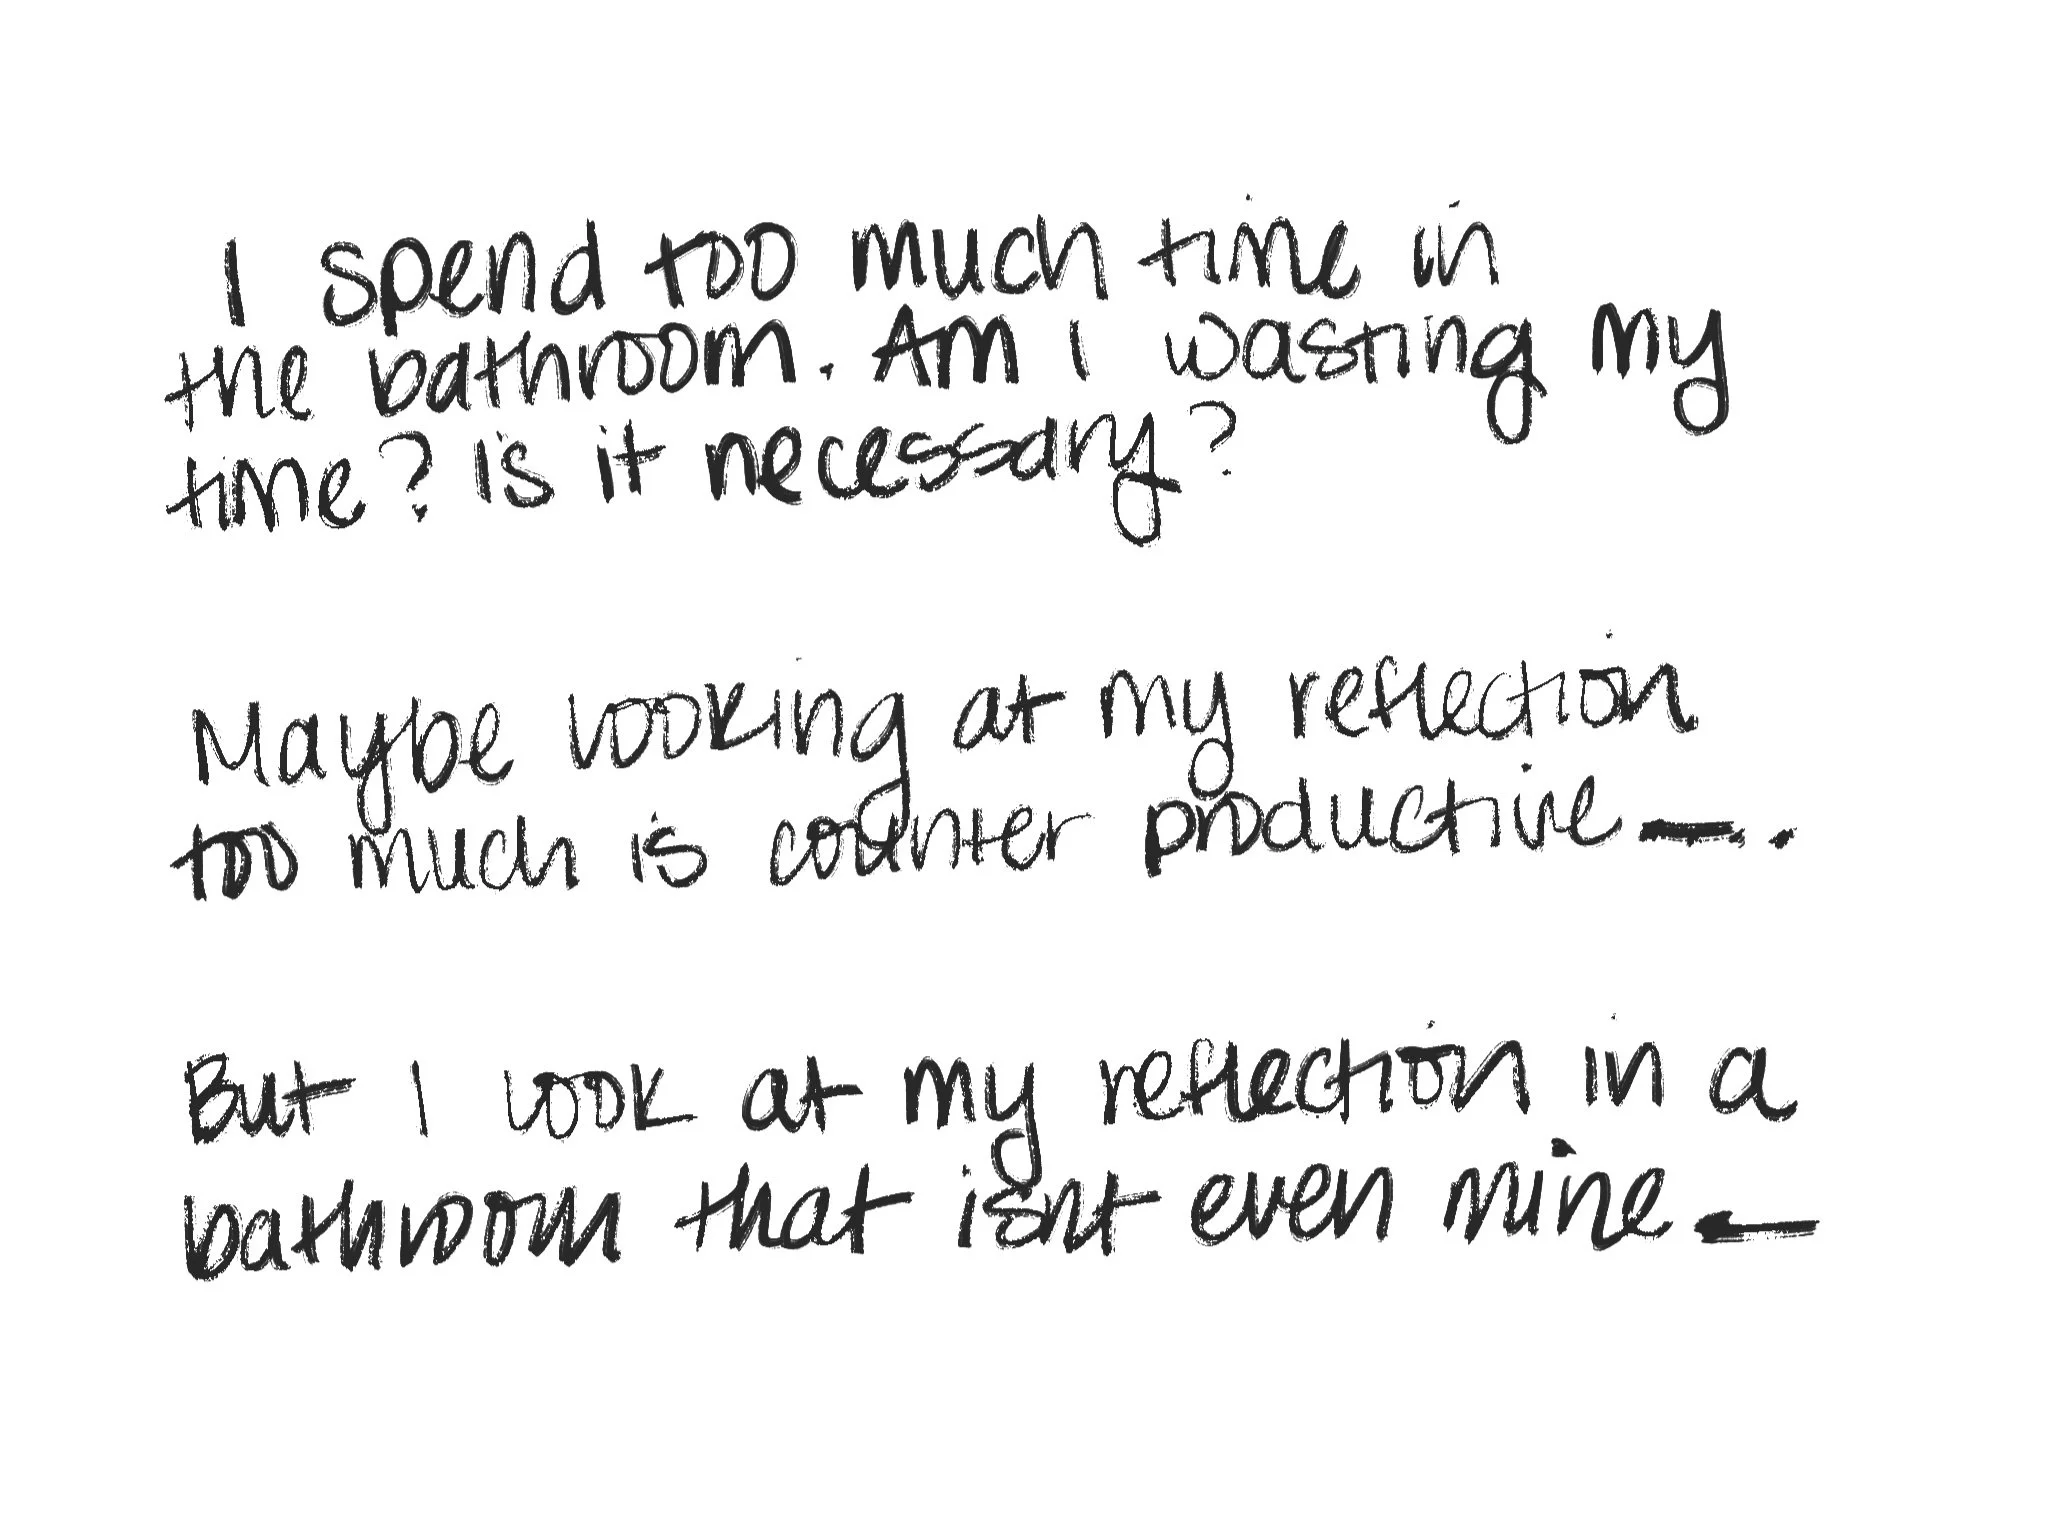 I spend too much time in
the bathroom. Am I wasting my
time? Is it necessary?
Maybe looking at my reflection
too much is counter productive—..
But I look at my reflection in a
bathroom that isnt even mine—